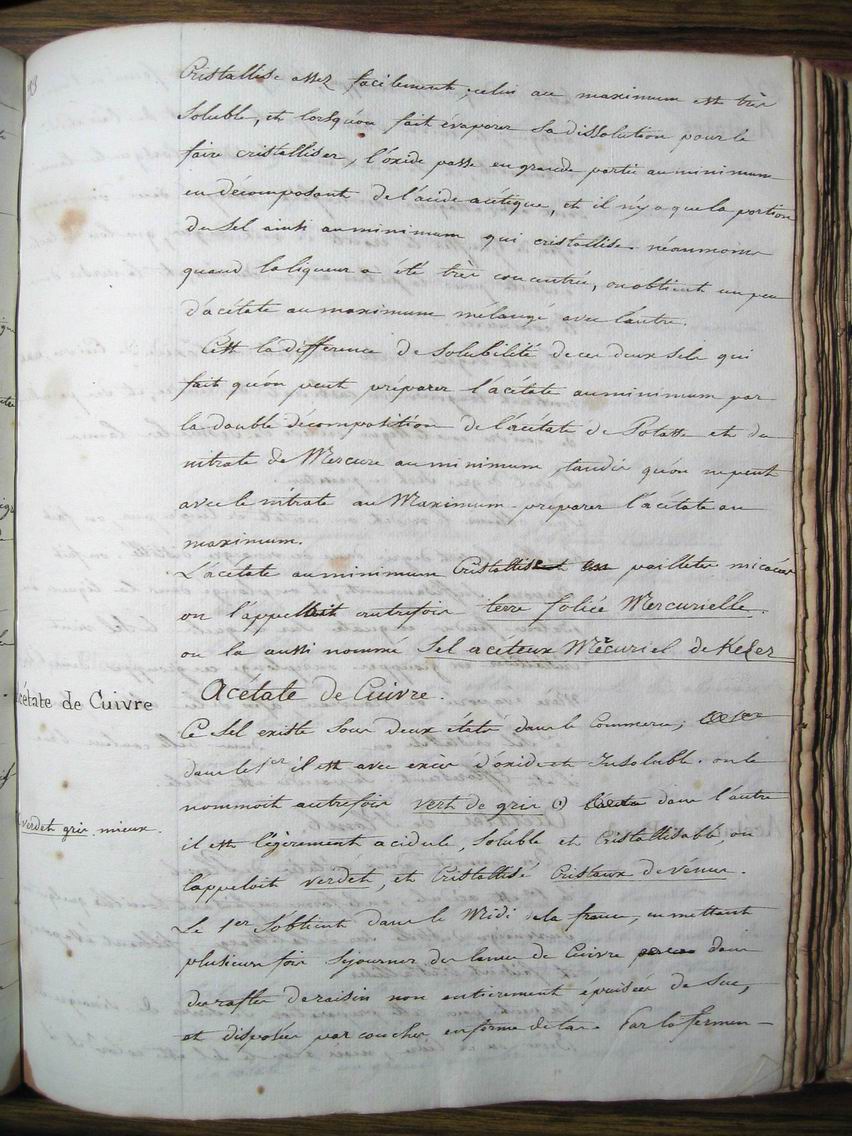 Cristallise assez facilement, celui au maximum est très
soluble, et lorsqu'on fait évaporer sa dissolution pour le
faire cristalliser, l'oxide passe en grande partie au minimum
en décomposant de l'acide acétique, et il n'y a que la portion
du sel ainsi au minimum qui cristallise. néanmoins
quand la liqueur a été très concentrée, on obtient un peu
d'acétate au maximum mélangé avec l'autre.
C'est la différence de solubilité de ces deux sels qui
fait qu'on peut préparer l'acétate au minimum par
la double décomposition de l'acétate de Potasse et du
nitrate de Mercure au minimum, tandis qu'on ne peut
avec le nitrate au Maximum préparer l'acétate au
maximum.
L'acétate au minimum Cristallise en paillettes micacées
on l'appelloit autrefois terre foliée Mercurielle.
on l'a aussi nommé Sel acéteux Mercuriel de Keser
Acétate de Cuivre
Acétate de Cuivre.
Ce sel existe sous deux états dans le Commerce;
dans le 1er il est avec excès d'oxide et Insoluble. on le
nommoit autrefois vert de gris dans l'autre
verdet gris. mieux.
il est légèrement acidule, soluble et Cristallisable, on
l'appeloit verdet, et Cristallisé Cristaux de vénus.
Le 1er S'obtient dans le Midi de la france, en mettant
plusieurs fois Sejourner des lames de Cuivre dans
des rafles de raisin non entièrement epuisées de Suc,
et disposées par couches en forme de tas. Par la fermen-